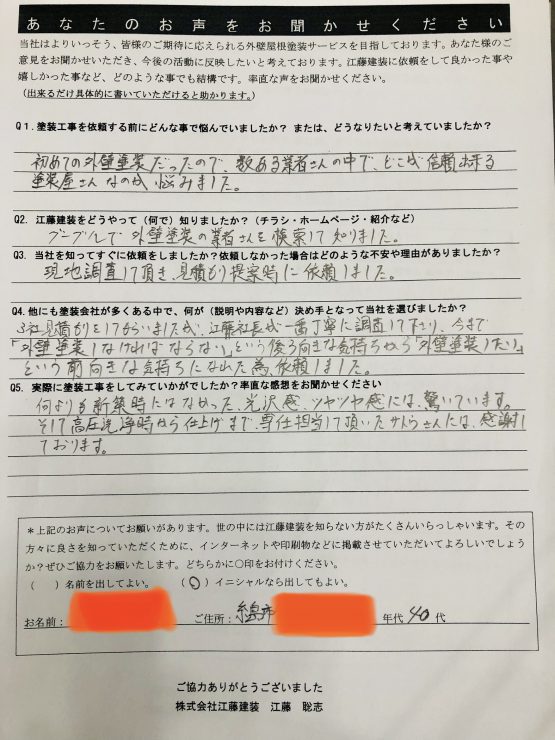 あなたのお声をお聞かせください
当社はよりいっそう、皆様のご期待に応えられる外壁屋根塗装サービスを目指しております。あなた様のご
意見をお聞かせいただき、今後の活動に反映したいと考えております。江藤建装に依頼をして良かった事や
嬉しかった事など、どのような事でも結構です。率直な声をお聞かせください。
(出来るだけ具体的に書いていただけると助かります。)
Q1.塗装工事を依頼する前にどんな事で悩んでいましたか? または、どうなりたいと考えていましたか?
初めての外壁塗装だったので、数ある業者さんの中で、どこが信頼出来る
塗装屋さんなのか悩みました。
Q2. 江藤建装をどうやって(何で)知りましたか?(チラシ・ホームページ・紹介など)
グーグルで外壁塗装の業者さんを検索して知りました。
Q3. 当社を知ってすぐに依頼をしましたか?依頼しなかった場合はどのような不安や理由がありましたか?
現地調査して頂き、見積もり提案時に依頼しました。
Q4.他にも塗装会社が多くある中で、何が(説明や内容など)決め手となって当社を選びましたか?
3社見積もりをしてもらいましたが、江藤社長が一番丁寧に調査して下さり、今まで
「外壁塗装しなければならない」という後ろ向きな気持ちから「外壁塗装したい」
という前向きな気持ちになれた為、依頼しました。
Q5. 実際に塗装工事をしてみていかがでしたか?率直な感想をお聞かせください
何よりも新築時にはなかった、光沢感、ツヤツヤ感には、驚いています。
そして高圧洗浄時から仕上げまで、専任担当して頂いたサトウさんには、感謝し
ております。
*上記のお声についてお願いがあります。世の中には江藤建装を知らない方がたくさんいらっしゃいます。その
方々に良さを知っていただくために、インターネットや印刷物などに掲載させていただいてよろしいでしょう
か?ぜひご協力をお願いします。どちらかに○印をお付けください。
( )名前を出してよい。 (○)イニシャルなら出してもよい。
お名前: ご住所:糸島市 年代 40 代
ご協力ありがとうございました
株式会社江藤建装 江藤 聡志